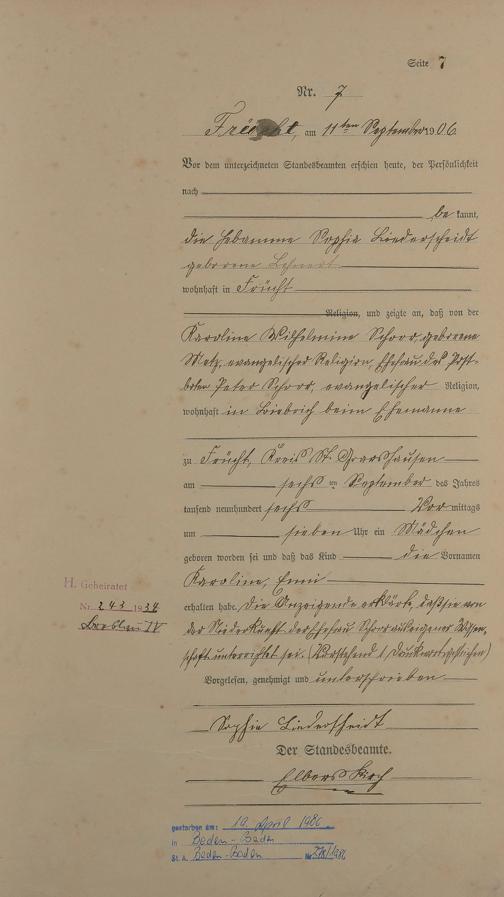 Seite 7
Nr. 7
Frücht, am 11ten September 1906.
Vor dem unterzeichneten Standesbeamten erschien heute, der Persönlichkeit
nach
be kannt,
die Hebamme Sophie Liederscheidt
geborene Lehnert
wohnhaft in Frücht
Religion, und zeigte an, daß von der
Karoline Wilhelmine Schorr, geborene
Metz, evangelischer Religion, Ehefrau des Post-
boten Peter Schorr, evangelischer Religion,
wohnhaft in Biebrich beim Ehemanne
zu Frücht, Kreis St. Goarshausen
am sechs ten September des Jahres
tausend neunhundert sechs Vor mittags
um sieben Uhr ein Mädchen
geboren worden sei und daß das Kind die Vornamen
Karoline, Enni
erhalten habe. Die Anzeigende erklärte, daß sie von
der Niederkunft der Ehefrau Schorr aus eigener Wissen-
schaft unterrichtet sei. (Vorstehend 1 Druckwort gestrichen)
Vorgelesen, genehmigt und unterschrieben
Sophie Liederscheidt
Der Standesbeamte.
Elberskirch
H. Geheiratet
Nr. 243 1934
Berlin IV
gestorben am: 19. April 1986
in Baden-Baden
St. A. Baden-Baden Nr. /1986